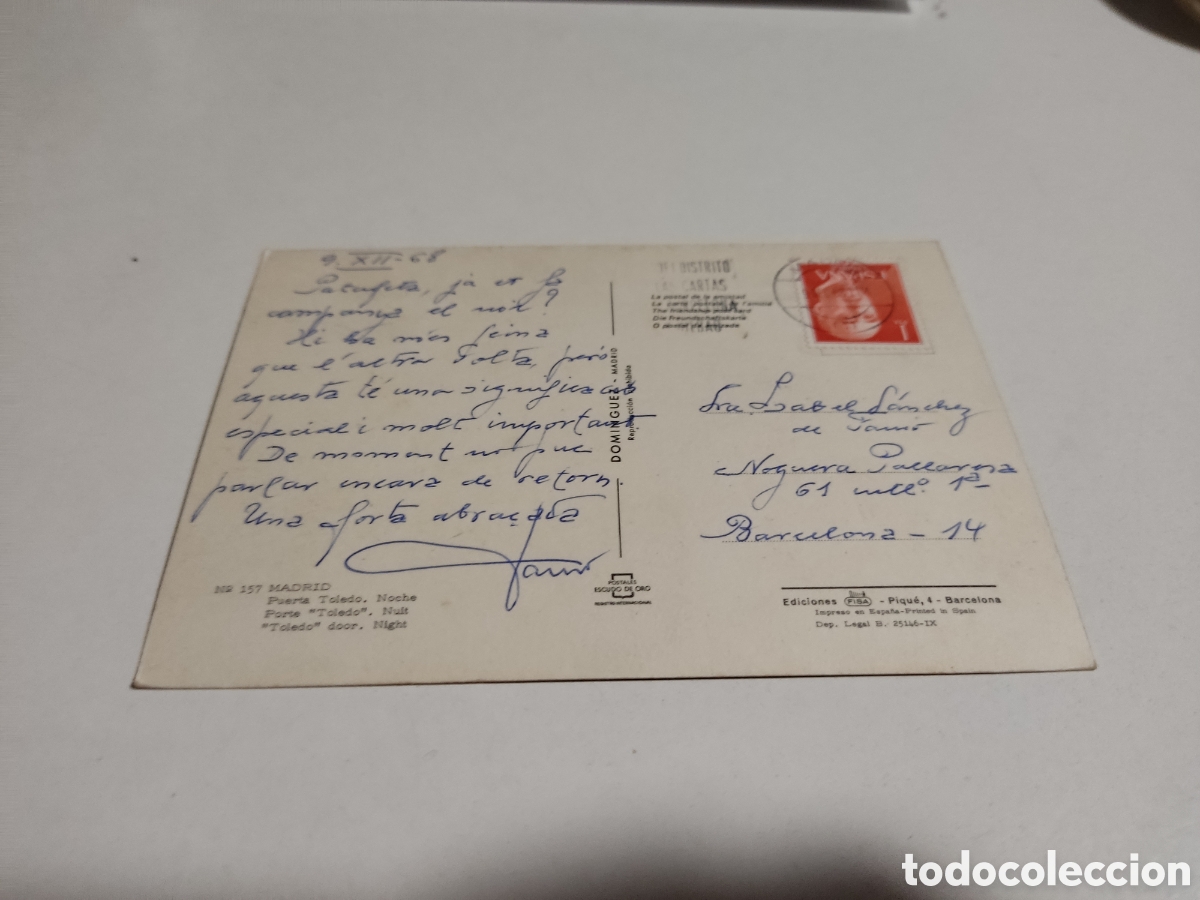 9 XII-68
Patufeta, ja et fa
companyia el noi?
Hi ha més feina
que l'altra volta, però
aquesta té una significació
especial i molt important
De moment no puc
parlar encara de retorn
Una forta abraçada
Nº 157 MADRID
Puerta Toledo. Noche
Porte "Toledo". Nuit
"Toledo" door. Night
DOMINGUEZ - MADRID
Reproducción prohibida
POSTALES
ESCUDO DE ORO
DISTRITO
CARTAS
La postal de la amistad
La carte postale de l'amitié
The friendship post card
Die freundschaftskarte
O postal da amizade
Sra. Isabel Sánchez
de
Noguera Pallaresa
61 1ª
Barcelona - 14
Ediciones FISA - Piqué, 4 - Barcelona
Impreso en España-Printed in Spain
Dep. Legal B. 25146-IX
todocoleccion